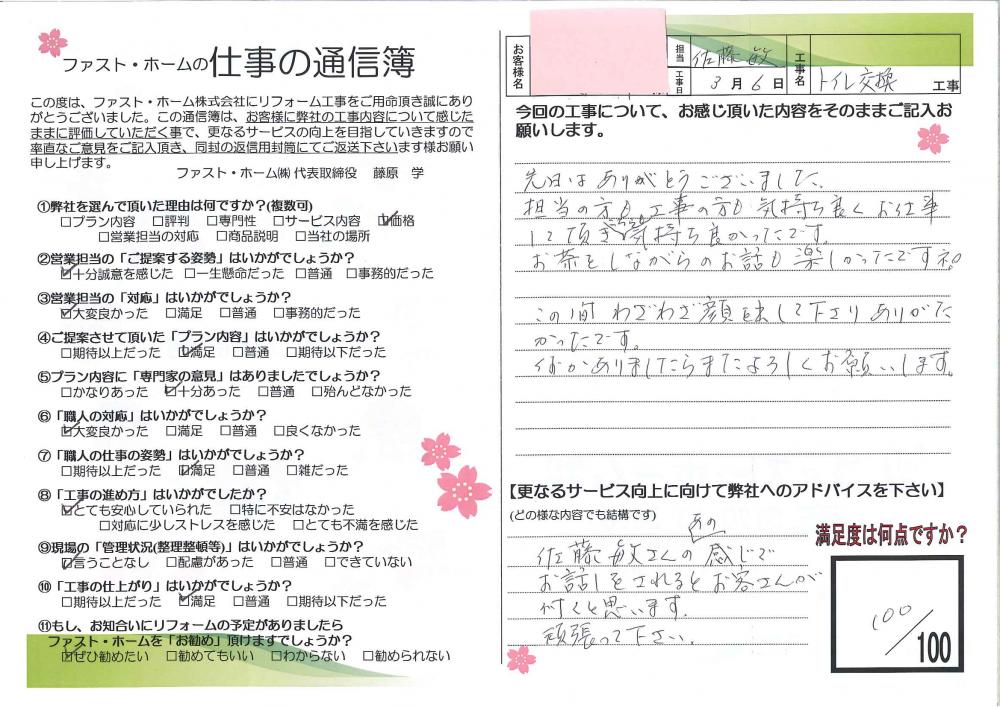 ファスト・ホームの仕事の通信簿
この度は、ファスト・ホーム株式会社にリフォーム工事をご用命頂き誠にあり
がとうございました。この通信簿は、お客様に弊社の工事内容について感じた
ままに評価していただく事で、更なるサービスの向上を目指していきますので
率直なご意見をご記入頂き、同封の返信用封筒にてご返送下さいます様お願い
申し上げます。
ファスト・ホーム㈱ 代表取締役 藤原 学
①弊社を選んで頂いた理由は何ですか?(複数可)
□プラン内容 □評判 □専門性 □サービス内容 ☑価格
□営業担当の対応 □商品説明 □当社の場所
②営業担当の「ご提案する姿勢」はいかがでしょうか?
☑十分誠意を感じた □一生懸命だった □普通 □事務的だった
③営業担当の「対応」はいかがでしょうか?
☑大変良かった □満足 □普通 □事務的だった
④ご提案させて頂いた「プラン内容」はいかがでしょうか?
□期待以上だった ☑満足 □普通 □期待以下だった
⑤プラン内容に「専門家の意見」はありましたでしょうか?
□かなりあった ☑十分あった □普通 □殆んどなかった
⑥「職人の対応」はいかがでしょうか?
☑大変良かった □満足 □普通 □良くなかった
⑦「職人の仕事の姿勢」はいかがでしょうか?
□期待以上だった ☑満足 □普通 □雑だった
⑧「工事の進め方」はいかがでしたか?
☑とても安心していられた □特に不安はなかった
□対応に少しストレスを感じた □とても不満を感じた
⑨現場の「管理状況(整理整頓等)」はいかがでしょうか?
☑言うことなし □配慮があった □普通 □できていない
⑩「工事の仕上がり」はいかがでしょうか?
□期待以上だった ☑満足 □普通 □期待以下だった
⑪もし、お知合いにリフォームの予定がありましたら
ファスト・ホームを「お勧め」頂けますでしょうか?
☑ぜひ勧めたい □勧めてもいい □わからない □勧められない
お客様名
担当 佐藤 敏
工事日 3月6日
工事名 トイレ交換 工事
今回の工事について、お感じ頂いた内容をそのままご記入お
願いします。
先日は ありがとうございました。
担当の方も 工事の方も 気持ち良く お仕事
して頂き こちらも 気持ち良かったです。
お茶をしながらのお話も 楽しかったですネ。
この間 わざわざ顔を出して下さり ありがた
かったです。
何かありましたらまたよろしくお願いします。
【更なるサービス向上に向けて弊社へのアドバイスを下さい】
(どの様な内容でも結構です)
佐藤 敏さんの あの 感じで
お話しをされるとお客さんが
付くと思います。
頑張って下さい。
満足度は何点ですか?
100/100